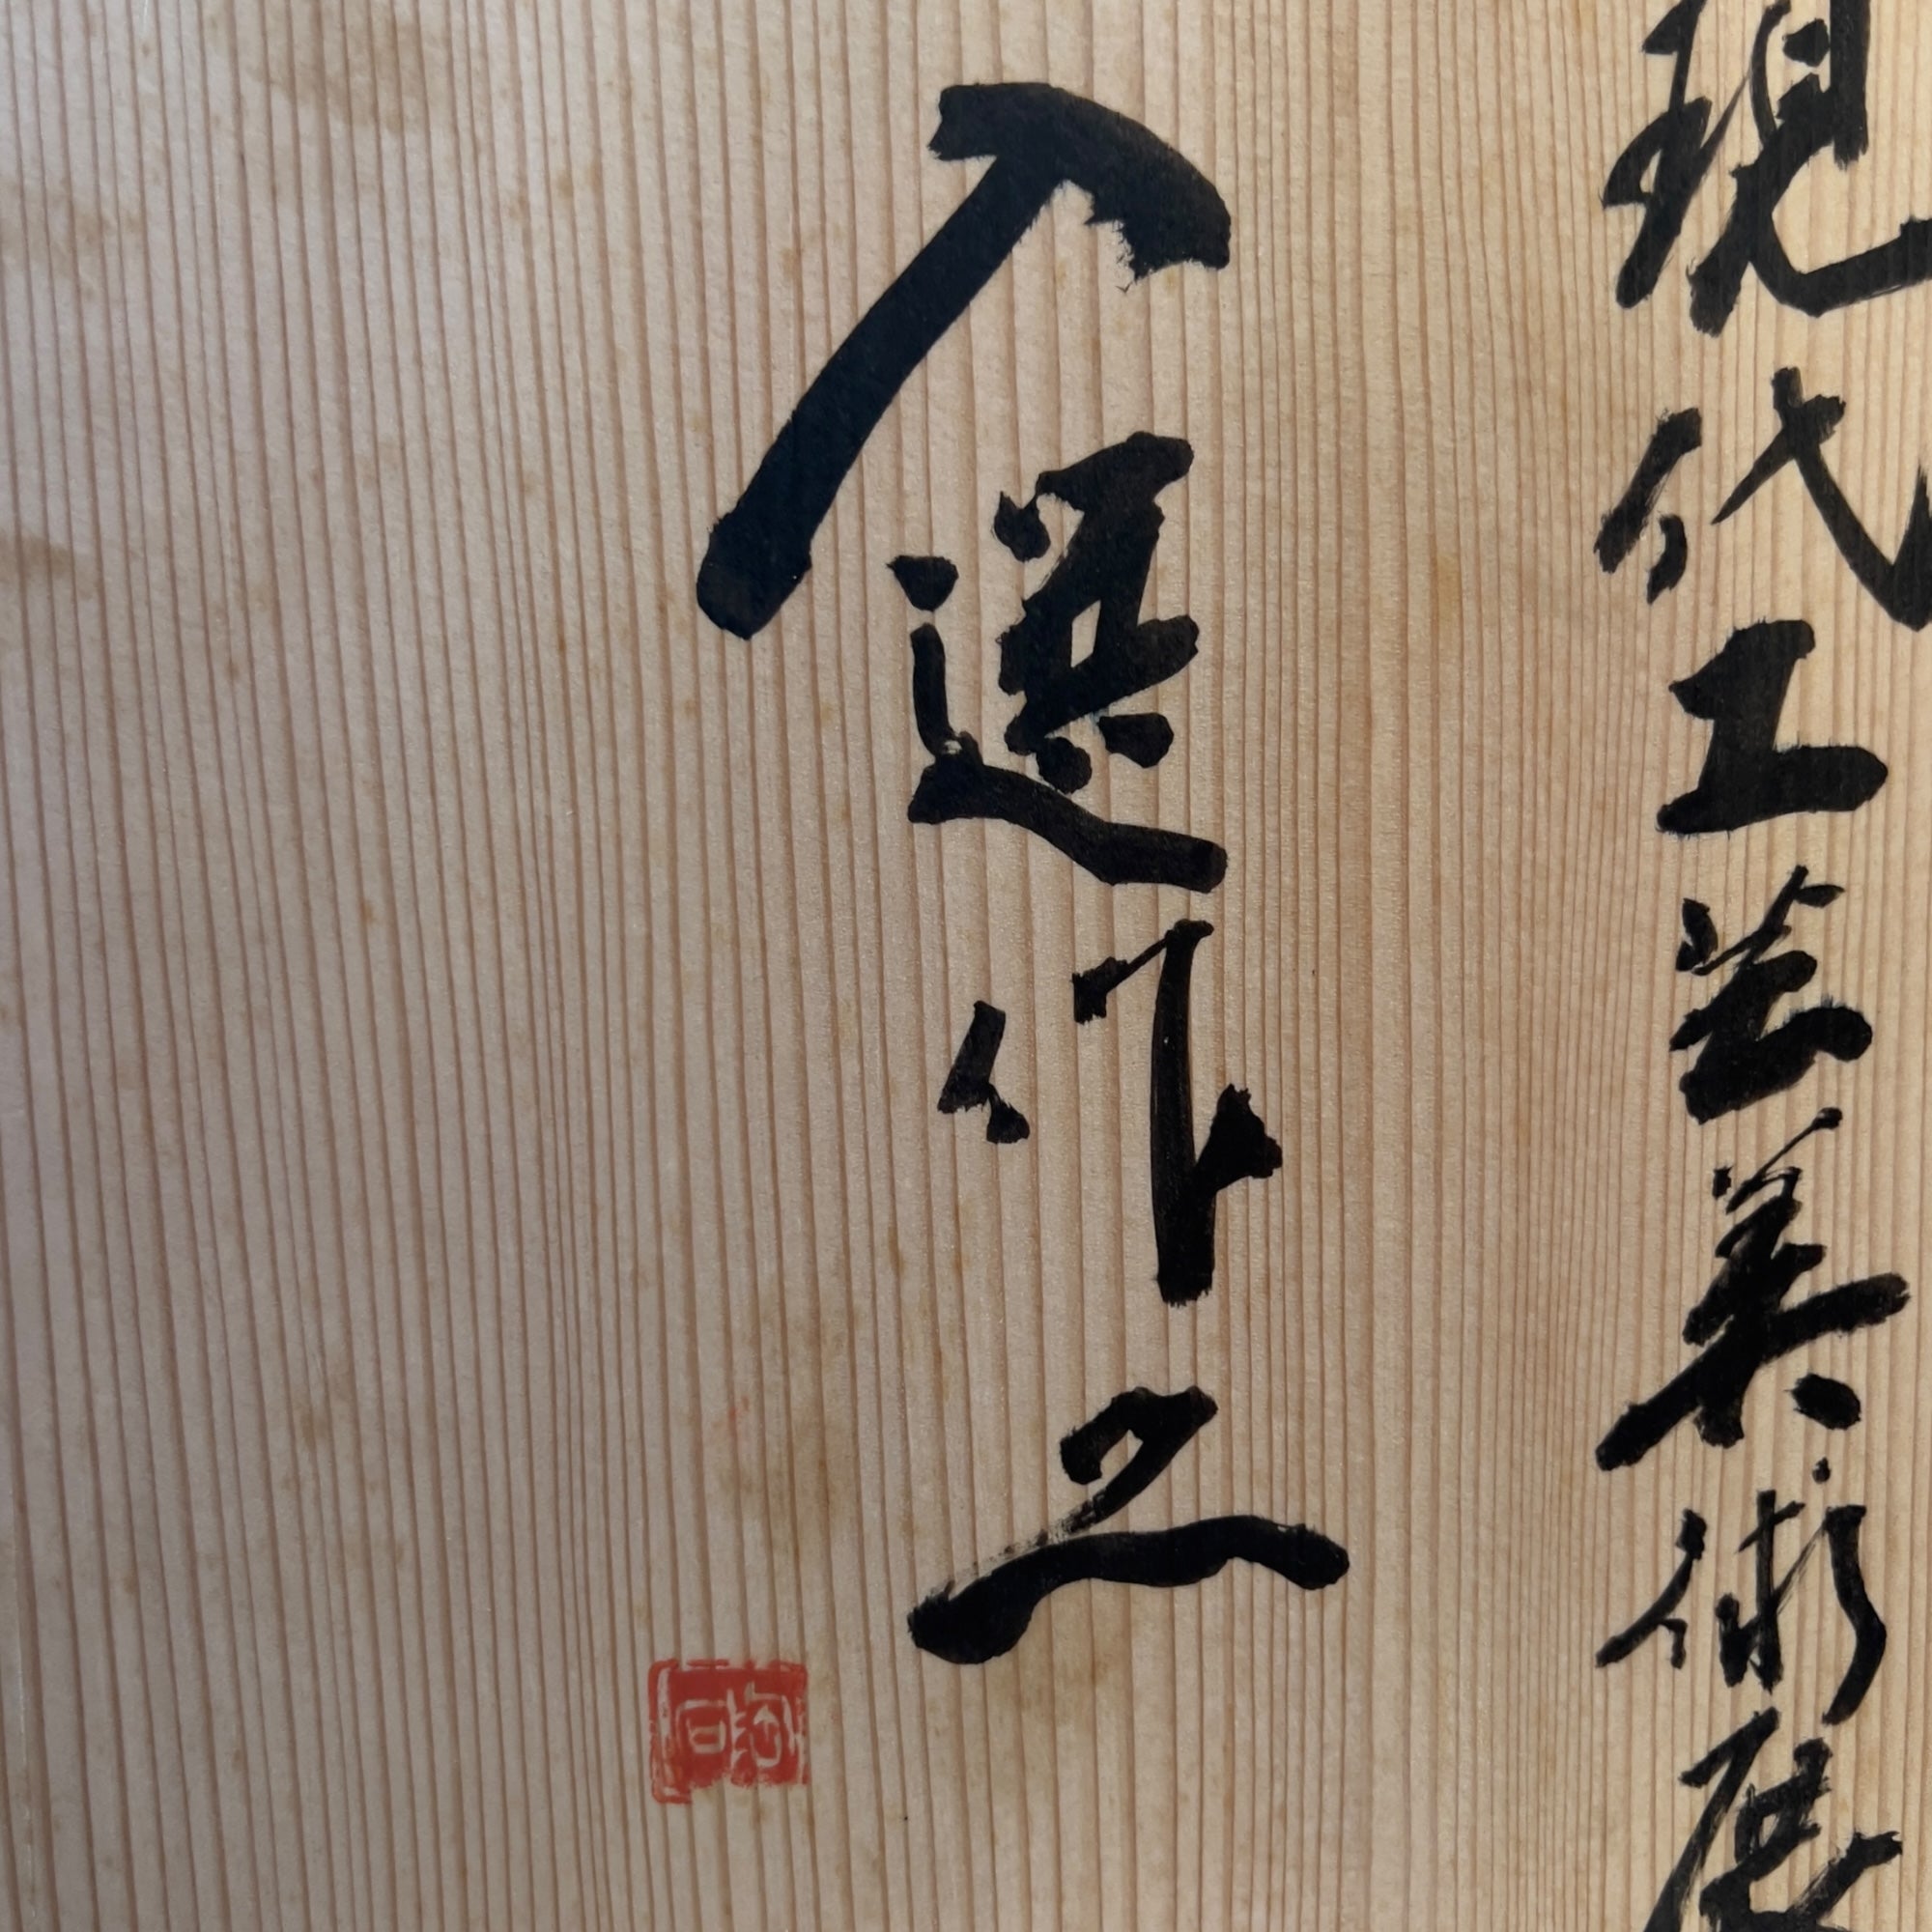 現代工芸美術展
入選作之